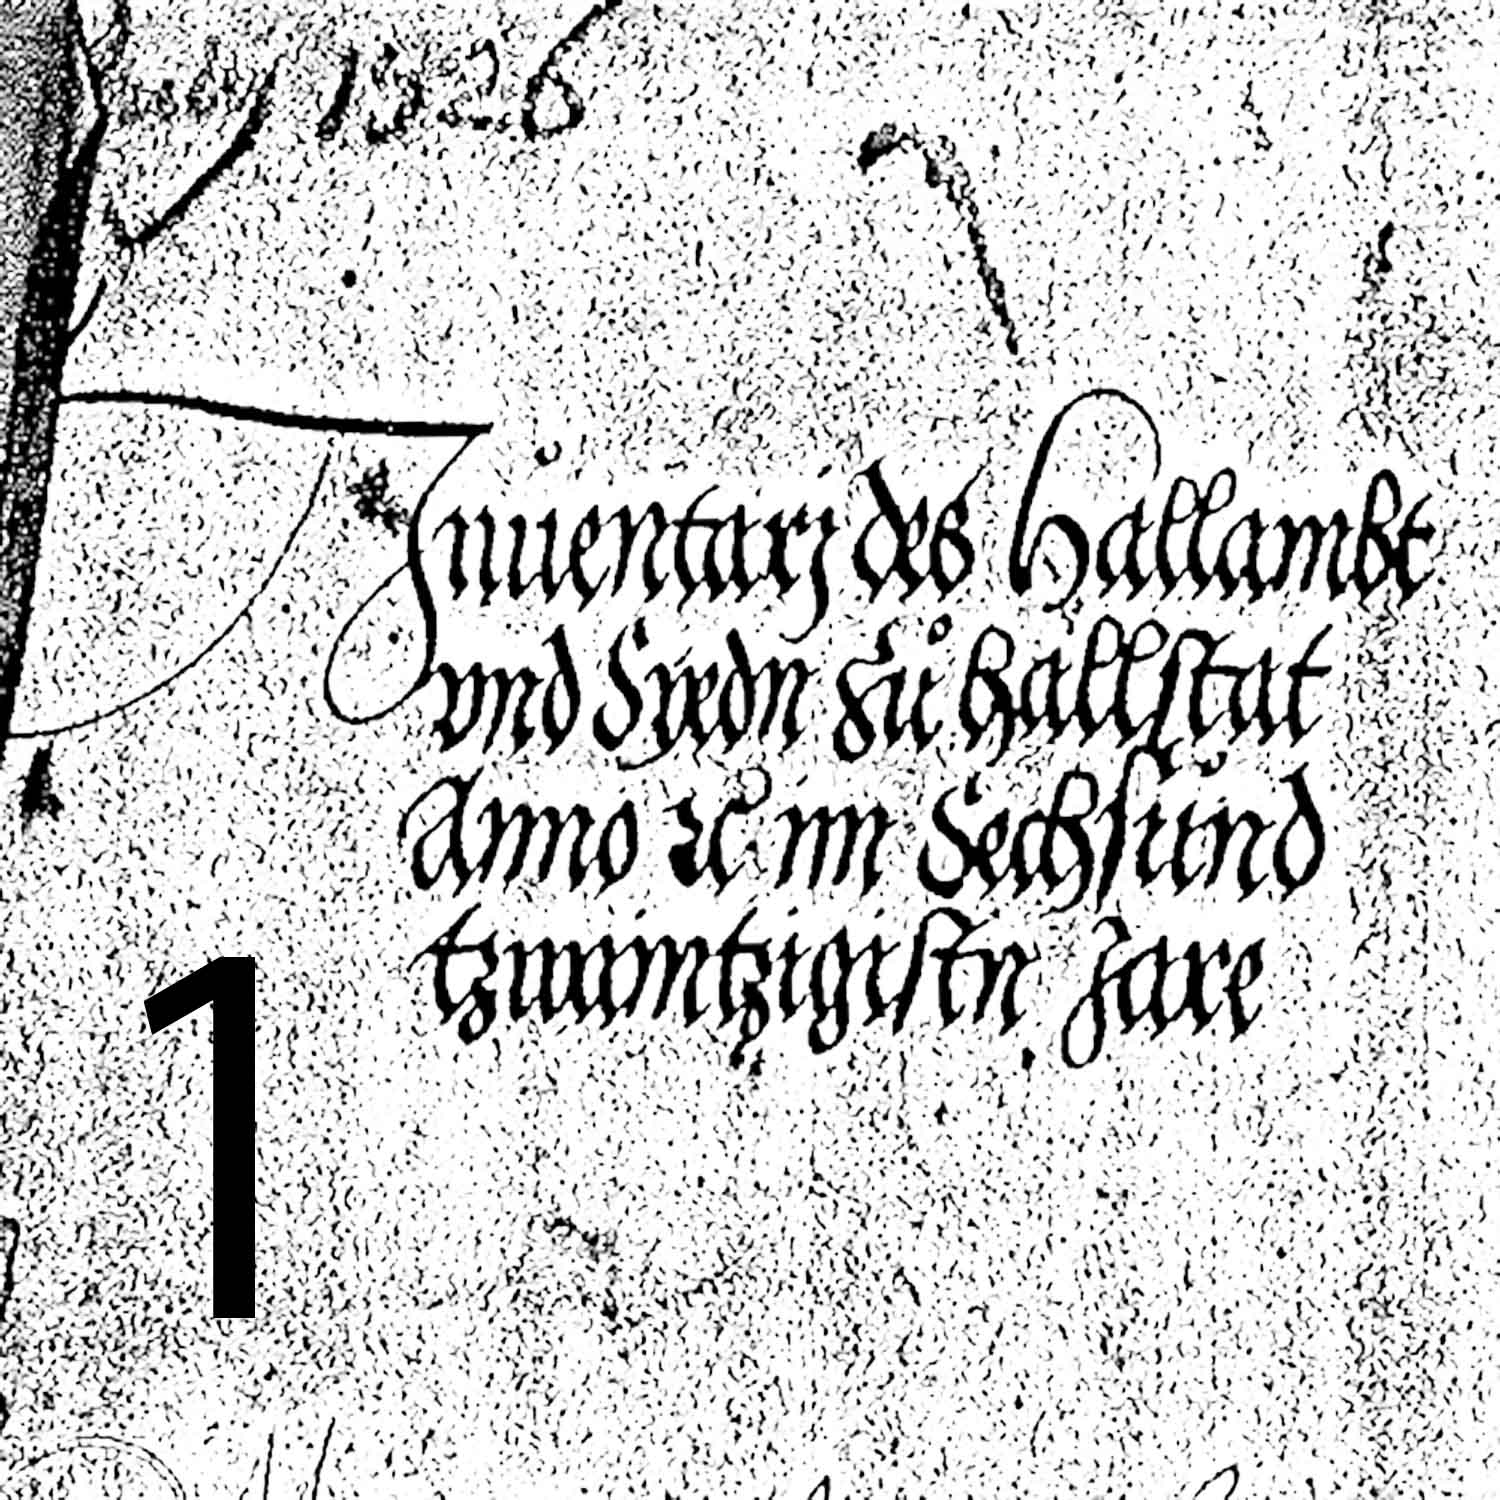 1526
Inuentarj des Hallambt
vnd Siedn zu Hallstat
Anno ꝛc im Sechsund
tzwaintzigistn Jare
1